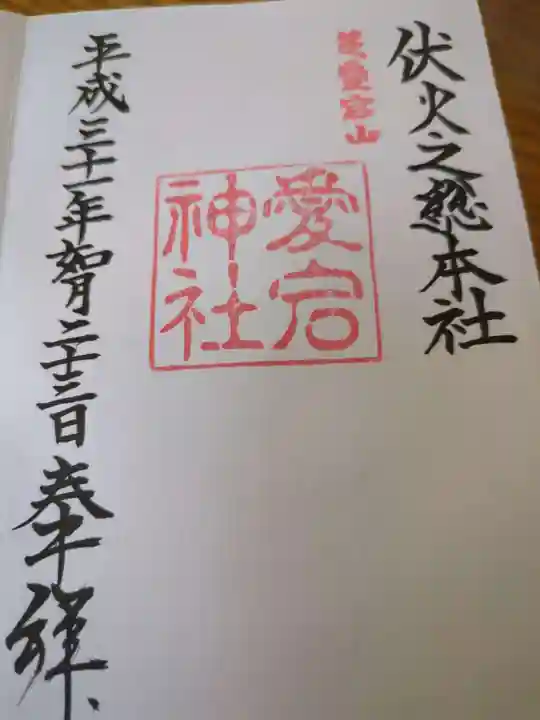 伏火之総本社
芝愛宕山
愛宕
神社
平成三十一年如月二十三日奉拝